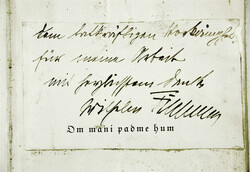 dem tatkräftigen
für meine Arbeit
mit herzlichstem Dank
Wilhelm
Om mani padme hum